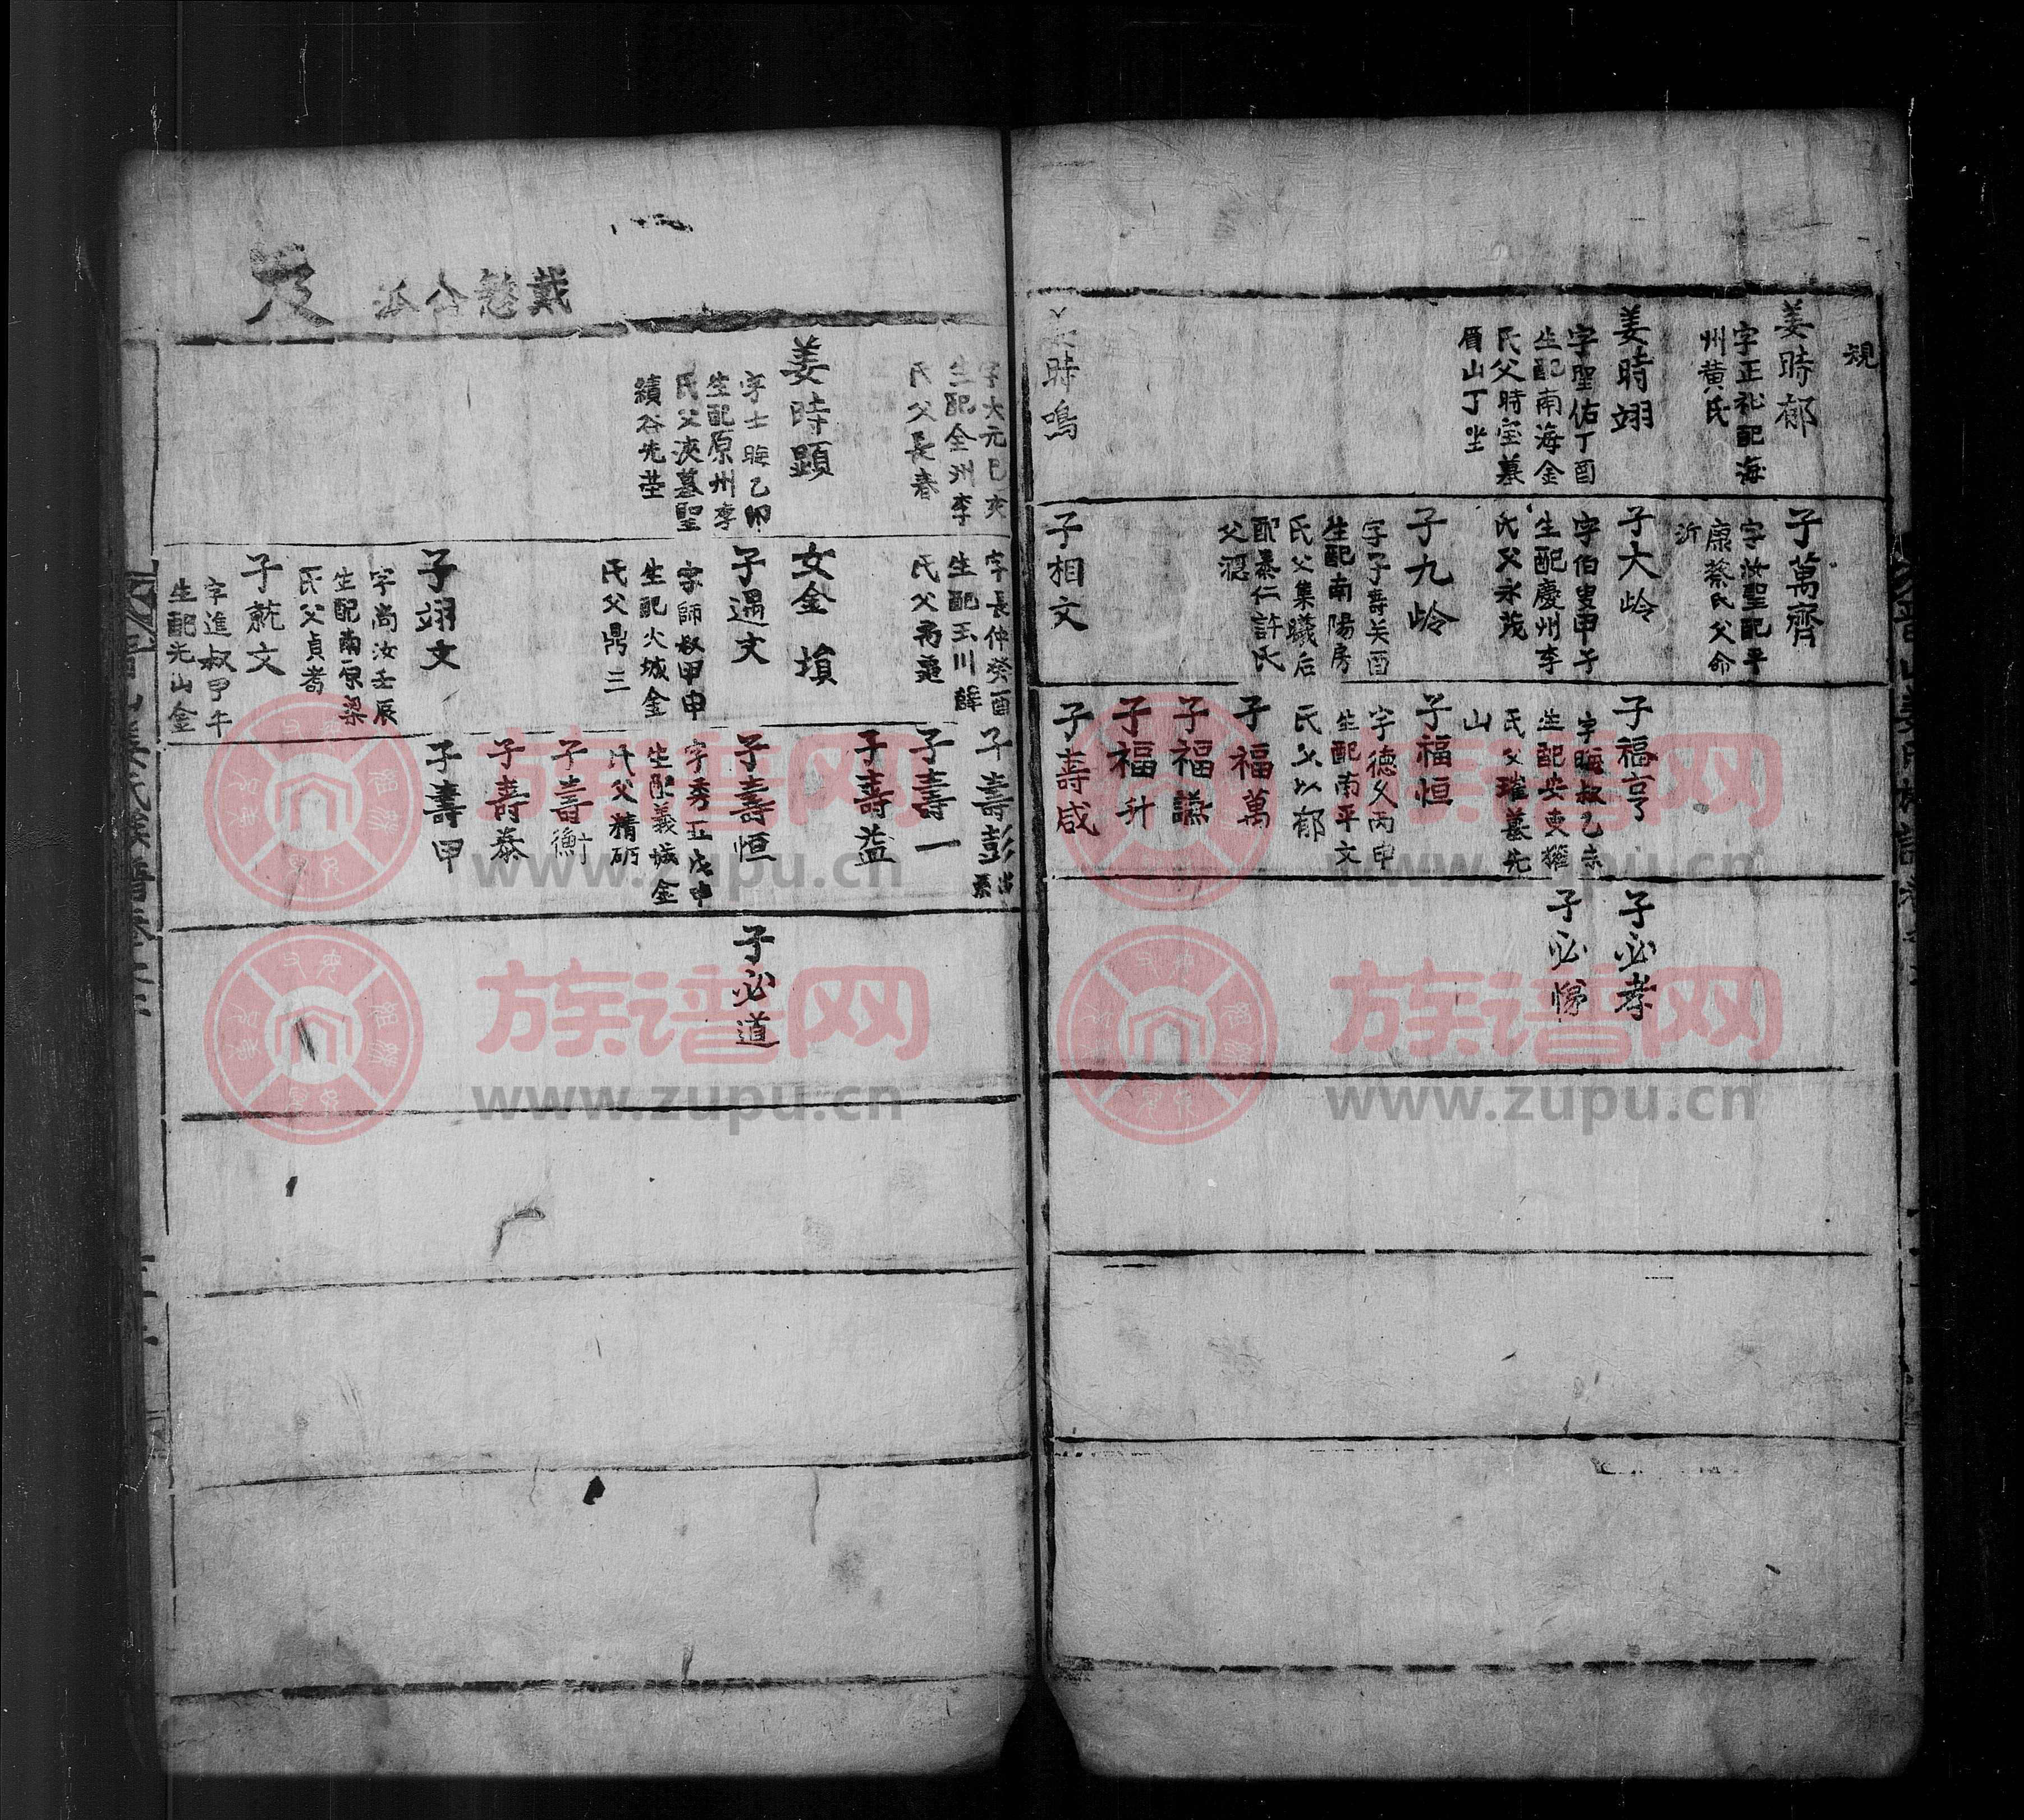 規
姜時郁
字正礼配海
州黄氏
姜時翊
字聖佑丁酉
生配南海金
氏父時宝墓
眉山丁坐
姜時鳴
子萬齊
字汝聖配平
康蔡氏父命
沂
子大岭
字伯叟甲子
生配慶州李
氏父永茂
子九岭
字子壽关酉
生配南陽房
氏父集曦后
配泰仁許氏
父混
子相文
子福亨
字晦叔乙未
氏父璀墓先
山
子福恒
字德父丙申
生配南平文
氏父以郁
子福萬
子福謙
子福升
子壽咸
子必孝
子必悌
字大元巳亥
生配全州李
氏父長春
姜時顕
字士晦乙卯
生配原州李
氏父浹墓聖
績谷先茔
字長仲癸酉
生配玉川韓
女金塤
子遇文
字師叔甲申
生配火城金
氏父鼎三
子翊文
字尚汝壬辰
生配南原梁
氏父貞耇
子就文
字進叔甲午
生配光山金
子壽彭出系
子壽一
子壽益
子壽恒
字秀五戊申
生配義城金
氏父精砺
子壽衡
子壽泰
子壽甲
子必道
族谱网
www.zupu.cn
族谱网
www.zupu.cn
族谱网
www.zupu.cn
族谱网
www.zupu.cn